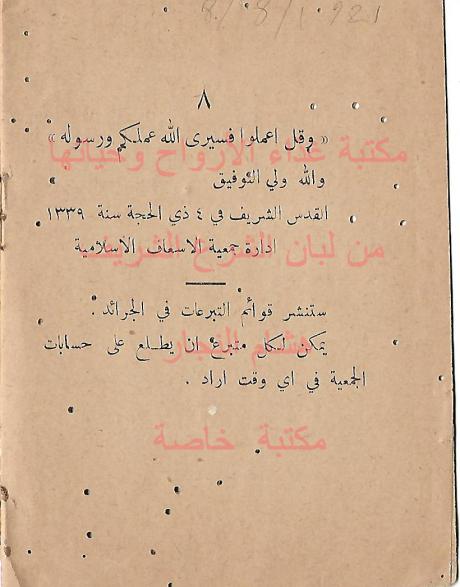 8/8/1921
٨
« وقل اعملوا فسيرى الله عملكم ورسوله »
مكتبة غذاء الارواح وحياتها
والله ولي التوفيق
القدس الشريف في ٤ ذي الحجة سنة ١٣٣٩
ادارة جمعية الاسعاف الاسلامية
من لبنان الفرع الشريف
ستنشر قوائم التبرعات في الجرائد .
يمكن لكل متبرع ان يطلع على حسابات
هشام النجار
الجمعية في اي وقت اراد .
مكتبة خاصة